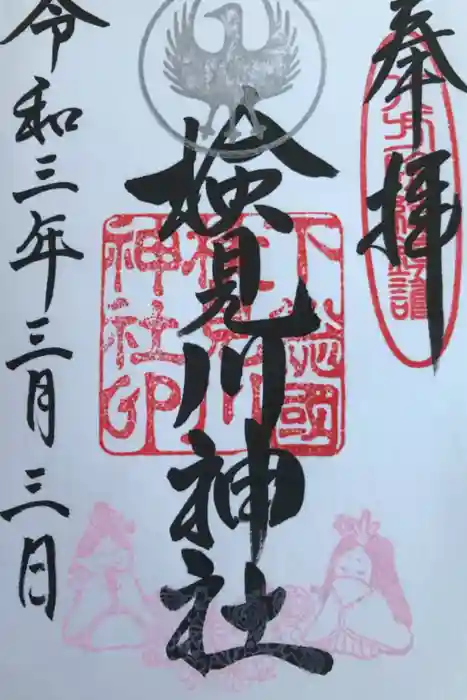 奉拝
検見川神社
令和三年三月三日
下総國
検見川
神社印